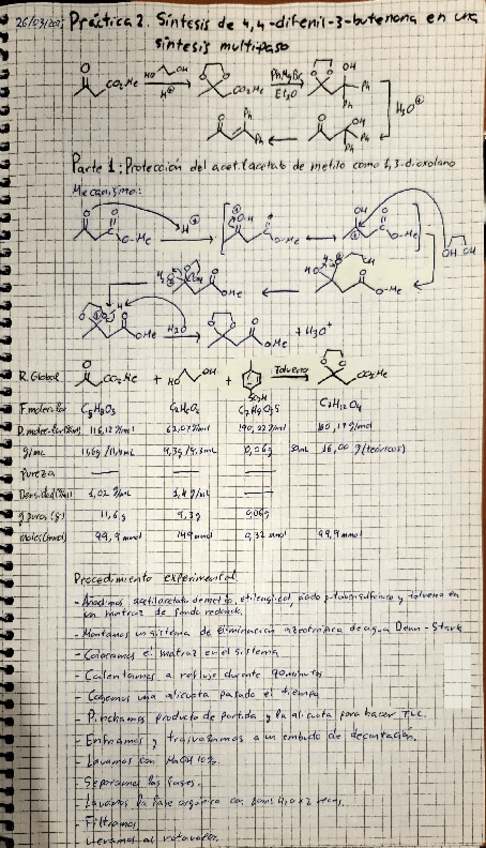 26/03/2025 Práctica 2. Síntesis de 4,4-difenil-3-butenona en una
síntesis multipaso
CO₂Me HO OH H⊕ CO₂Me PhMgBr Et₂O OH Ph Ph H₃O⊕
Ph Ph O OH Ph Ph
Parte 1: Protección del acetilacetato de metilo como 1,3-dioxolano
Mecanismo:
O O O-Me H⊕ OH O O-Me OH O O-Me OH OH
OMe O-Me
OMe H₂O OMe + H₃O⁺
R. Global CO₂Me + HO OH + SO₃H Tolueno CO₂Me
F. molecular C₅H₈O₃ C₂H₆O₂ C₇H₈O₃S C₇H₁₂O₄
P. molecular 116,12 g/mol 62,07 g/mol 190,22 g/mol 160,17 g/mol
g/mL 11,6g 9,3g 0,06g 50mL 16,00 g (teóricos)
Pureza
Densidad 1,02 g/mL
g puros (g) 11,6g 9,3g 0,06g
moles (mmol) 99,9 mmol 149 mmol 0,32 mmol 99,9 mmol
Procedimiento experimental
- Añadimos acetilacetato de metilo, etilenglicol, ácido p-toluensulfónico y tolueno en
un matraz de fondo redondo.
- Montamos un sistema de eliminación azeotrópica de agua Dean-Stark
- Colocamos el matraz en el sistema
- Calentamos a reflujo durante 90 minutos
- Cogemos una alícuota pasado el tiempo
- Pinchamos producto de partida y la alícuota para hacer TLC.
- Enfriamos y trasvasamos a un embudo de decantación.
- Lavamos con NaOH 10%.
- Separamos las fases.
- Lavamos la fase orgánica con
- Filtramos
- Llevamos al rotavapor.